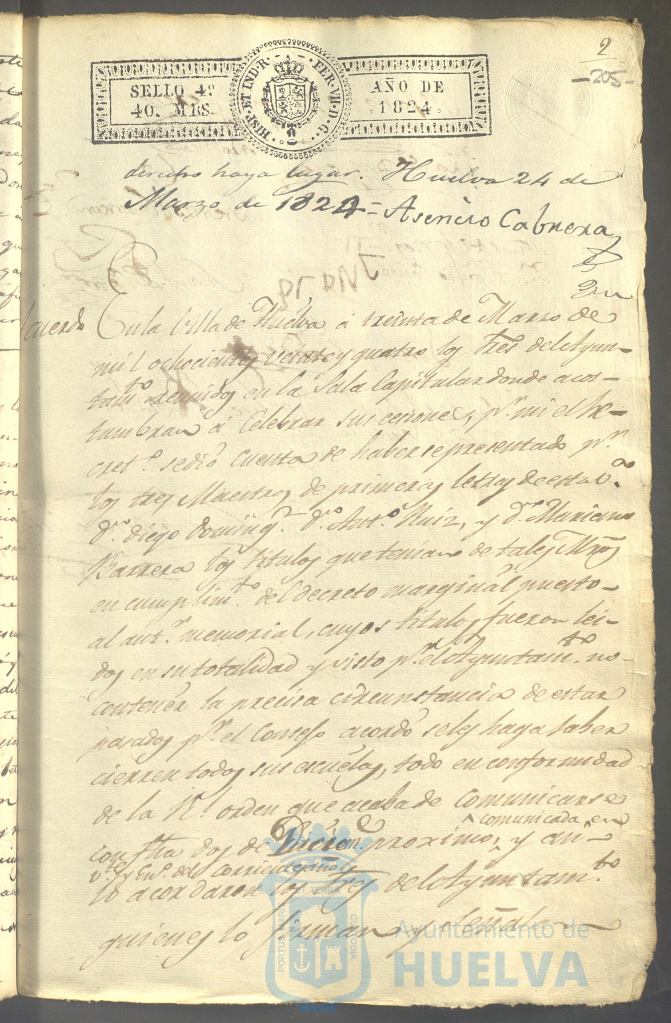 2
-205-
SELLO 4º
40. MRS.
HISP. ET IND. R. FER. VII. D. G.
AÑO DE
1824
derecho haya lugar. Huelva 24 de
Marzo de 1824 = Asencio Cabrera
Acuerdo
En la Villa de Huelva á treinta de Marzo de
mil ochocientos veinte y quatro los Sres del Ayun-
tamto reunidos en la Sala Capitular donde acos-
tumbran á celebrar sus cesiones, pr mi el Se-
creto se dió cuenta de haberse presentado pr
los tres Maestros de primeras letras de esta Va
Dn Diego Doming. Dn Anto Ruiz, y Dn Mariano
Barrera los titulos que tenian de tales Mros
en cumplimto del decreto marginal puesto
al antr memorial, cuyos titulos fueron lei-
dos en su totalidad y visto pr el Ayuntamto no
contener la precisa circunstancia de estar
pasados pr el Consejo acordó se les haga saber
cierren todos sus escuelas, todo en conformidad
de la Rl orden que acaba de comunicarse
con fha dos de Diciem. proximo, y comunicada en
del corriente año y asi
lo acordaron los Sres del Ayuntamto
quienes lo firman y señalan
PORTUS MARIS
TERRÆ CUSTODIA
Ayuntamiento de
HUELVA